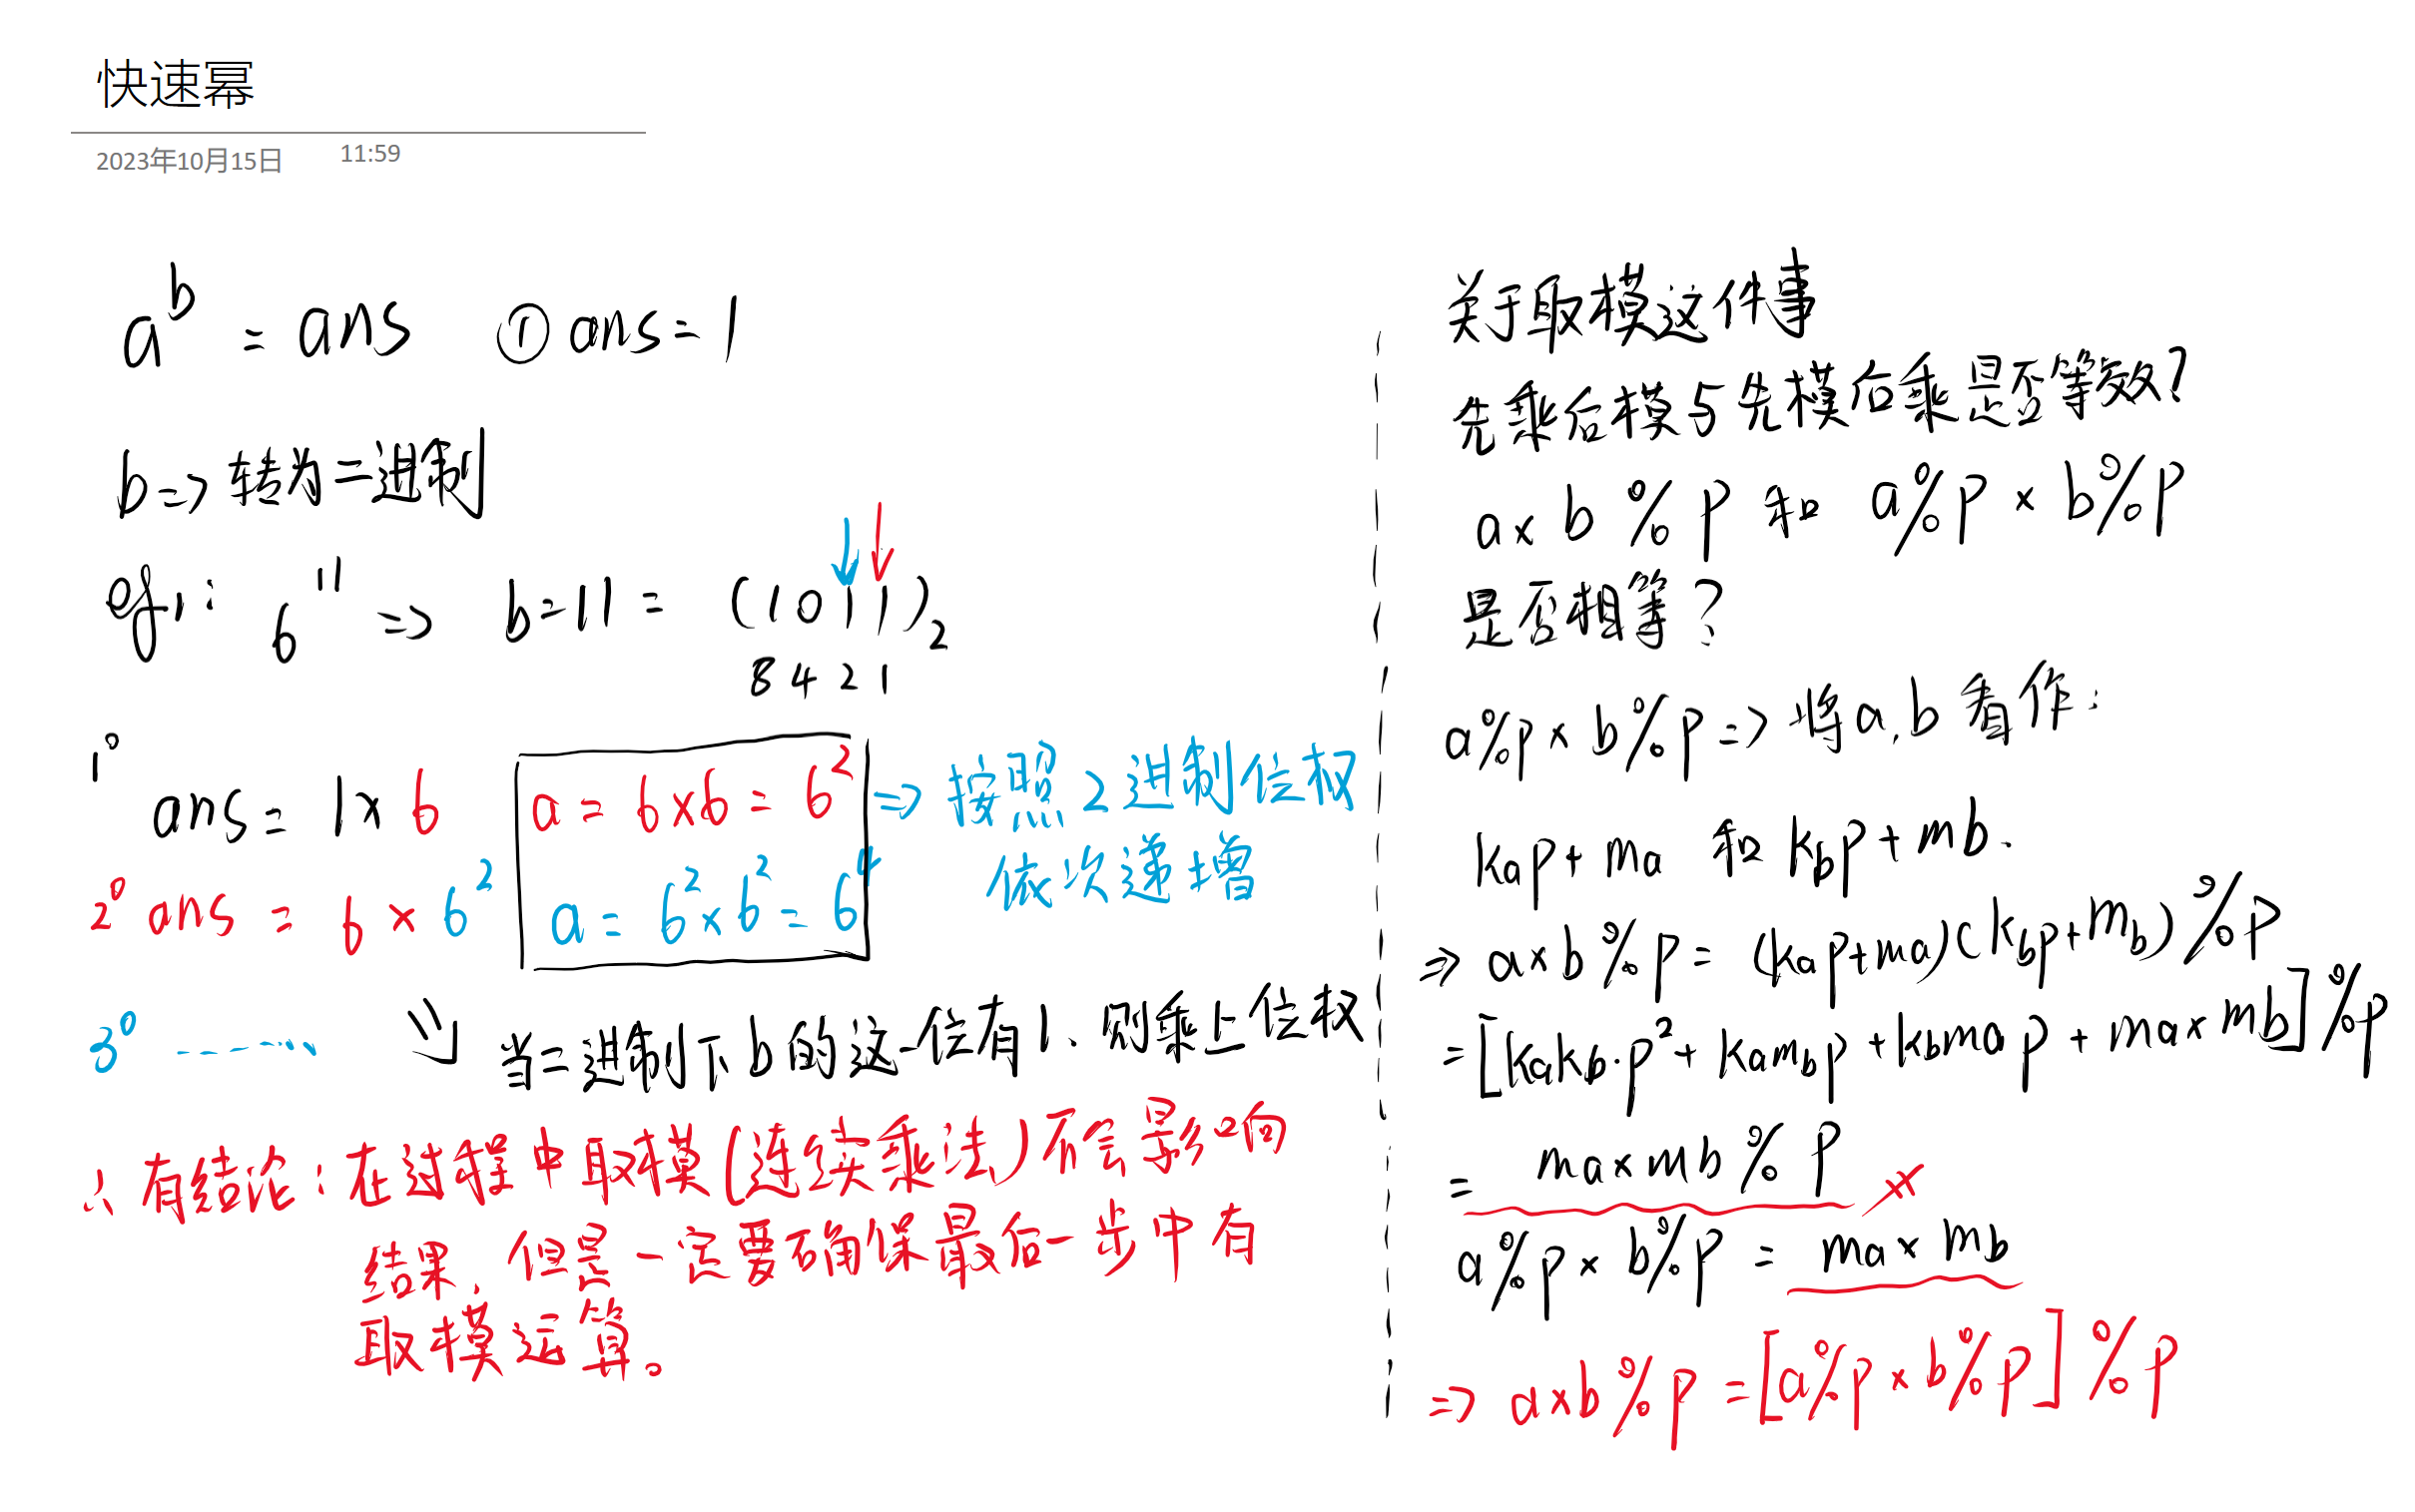 快速幂
2023年10月15日 11:59
a^b = ans ① ans = 1
b => 转为二进制
eg1: 6^11 => b = 11 = (1011)₂
8 4 2 1
1° ans = 1 × 6 a = 6×6 = 6² => 按照2进制位权
依次递增
2° ans = 6 × 6² a = 6²×6² = 6⁴
3° ........ 当二进制下b的这一位有1、则乘上位权
∴ 有结论: 在过程中取模(连续乘法)不会影响
结果, 但是一定要确保最后一步中有
取模运算。
关于取模这件事
先乘后模与先模后乘是否等效?
a × b % p 和 a%p × b%p
是否相等?
a%p × b%p => 将a,b看作:
kap + ma 和 kbp + mb.
=> a×b%p = (kap+ma)(kbp+mb)%p
= [kakb·p² + kambp + kbmap + ma×mb]%p
= ma×mb % p
a%p × b%p = ma × mb
=> a×b%p = [a%p × b%p]%p